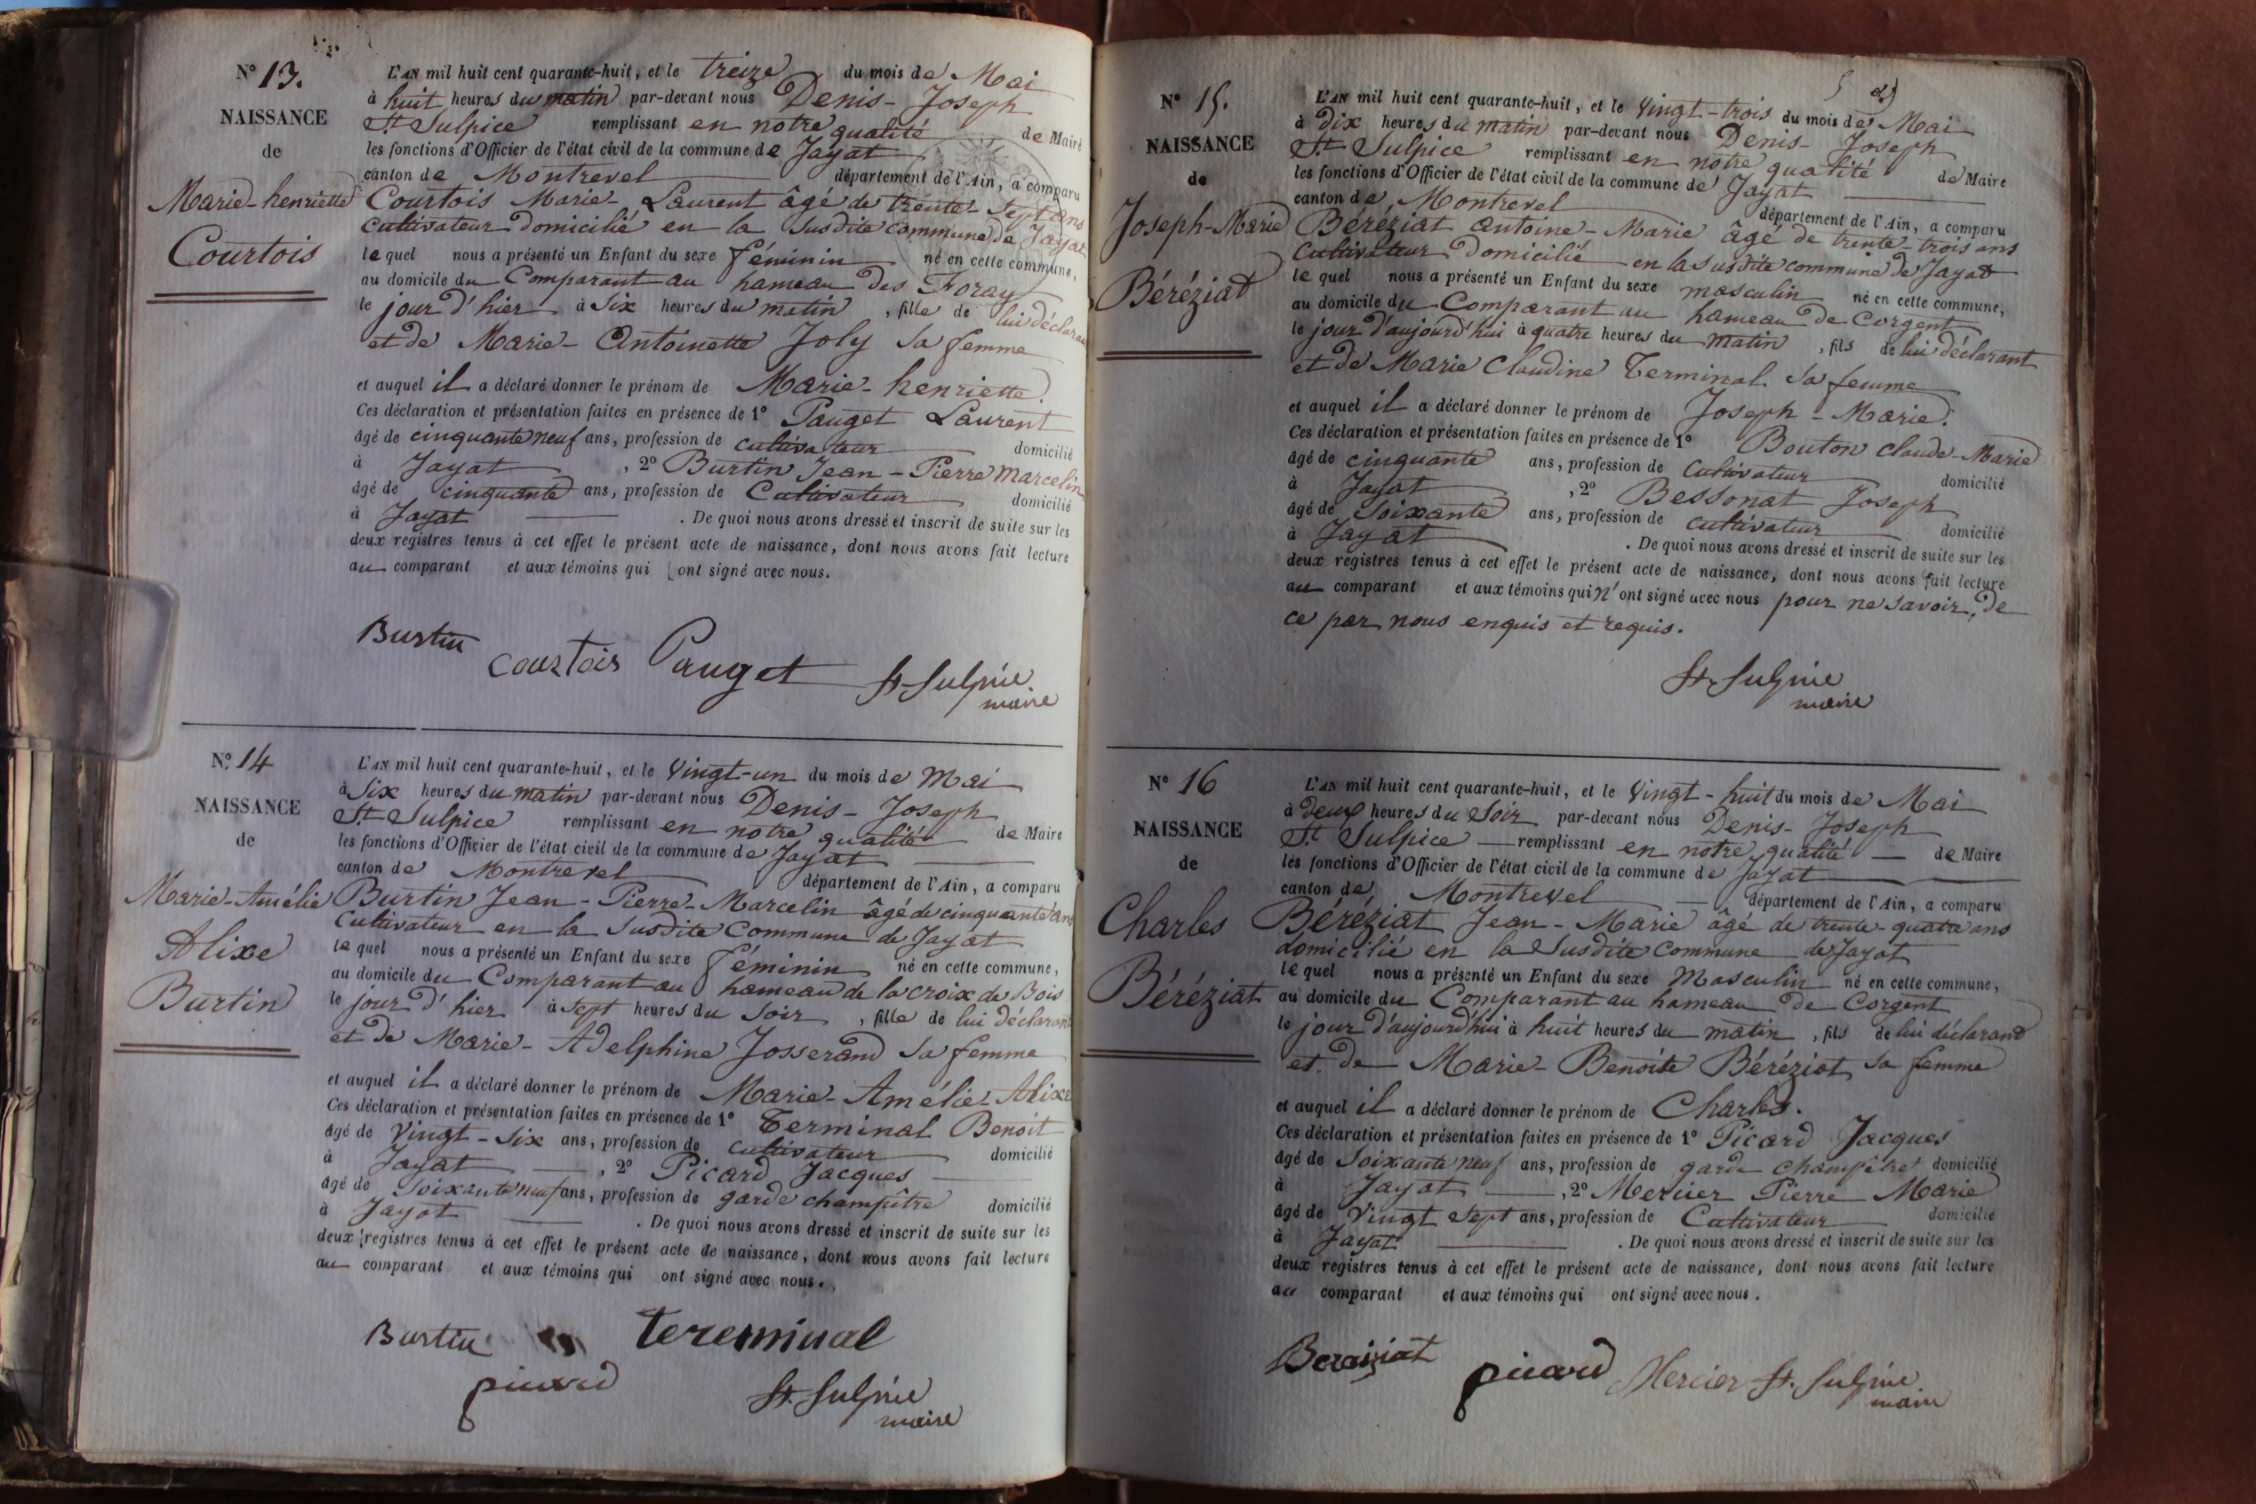 N.º 13.
NAISSANCE
de
Marie-henriette
Courtois
L'AN mil huit cent quarante-huit, et le treize du mois de Mai
à huit heures du matin par-devant nous Denis-Joseph
St Sulpice remplissant en notre qualité de Maire
les fonctions d'Officier de l'état civil de la commune de Jayat
canton de Montrevel département de l'Ain, a comparu
Courtois Marie-Laurent âgé de trente-sept ans
cultivateur domicilié en la susdite commune de Jayat
le quel nous a présenté un Enfant du sexe féminin né en cette commune,
au domicile du Comparant au hameau des Foray
le jour d'hier à six heures du matin, fille de lui déclarant
et de Marie-Antoinette Joly sa femme
et auquel il a déclaré donner le prénom de Marie-henriette.
Ces déclaration et présentation faites en présence de 1º Pauget Laurent
âgé de cinquante neuf ans, profession de cultivateur domicilié
à Jayat, 2º Burtin Jean-Pierre Marcelin
âgé de cinquante ans, profession de Cultivateur domicilié
à Jayat. De quoi nous avons dressé et inscrit de suite sur les
deux registres tenus à cet effet le présent acte de naissance, dont nous avons fait lecture
au comparant et aux témoins qui ont signé avec nous.
Burtin Courtois Pauget St Sulpice
maire
N.º 14
NAISSANCE
de
Marie-Amélie
Alixe
Burtin
L'AN mil huit cent quarante-huit, et le vingt-un du mois de Mai
à Six heures du matin par-devant nous Denis-Joseph
St Sulpice remplissant en notre qualité de Maire
les fonctions d'Officier de l'état civil de la commune de Jayat
canton de Montrevel département de l'Ain, a comparu
Burtin Jean-Pierre-Marcelin âgé de cinquante ans
Cultivateur en la susdite Commune de Jayat
le quel nous a présenté un Enfant du sexe féminin né en cette commune,
au domicile du Comparant au hameau de la croix de Bois
le jour d'hier à sept heures du soir, fille de lui déclarant
et de Marie-Adelphine Josserand sa femme
et auquel il a déclaré donner le prénom de Marie-Amélie-Alixe
Ces déclaration et présentation faites en présence de 1º Terminal Benoit
âgé de vingt-six ans, profession de cultivateur domicilié
à Jayat, 2º Picard Jacques
âgé de soixante neuf ans, profession de garde champêtre domicilié
à Jayat. De quoi nous avons dressé et inscrit de suite sur les
deux registres tenus à cet effet le présent acte de naissance, dont nous avons fait lecture
au comparant et aux témoins qui ont signé avec nous.
Burtin tereminal
picard St. Sulpice
maire
Nº 15.
NAISSANCE
de
Joseph-Marie
Béréziat
L'AN mil huit cent quarante-huit, et le vingt-trois du mois de Mai
à dix heures du matin par-devant nous Denis-Joseph
St Sulpice remplissant en notre qualité de Maire
les fonctions d'Officier de l'état civil de la commune de Jayat
canton de Montrevel département de l'Ain, a comparu
Béréziat antoine-Marie âgé de trente-trois ans
Cultivateur domicilié en la susdite commune de Jayat
le quel nous a présenté un Enfant du sexe masculin né en cette commune,
au domicile du Comparant au hameau de Corgent
le jour d'aujourd'hui à quatre heures du matin, fils de lui déclarant
et de Marie Claudine Terminal sa femme
et auquel il a déclaré donner le prénom de Joseph-Marie.
Ces déclaration et présentation faites en présence de 1º Bouton claude-Marie
âgé de cinquante ans, profession de Cultivateur domicilié
à Jayat, 2º Bessonat Joseph
âgé de soixante ans, profession de cultivateur domicilié
à Jayat. De quoi nous avons dressé et inscrit de suite sur les
deux registres tenus à cet effet le présent acte de naissance, dont nous avons fait lecture
au comparant et aux témoins qui n'ont signé avec nous pour ne savoir, de
ce par nous enquis et requis.
St. Sulpice
maire
Nº 16
NAISSANCE
de
Charles
Béréziat
L'AN mil huit cent quarante-huit, et le vingt-huit du mois de Mai
à deux heures du soir par-devant nous Denis-Joseph
St Sulpice remplissant en notre qualité de Maire
les fonctions d'Officier de l'état civil de la commune de Jayat
canton de Montrevel département de l'Ain, a comparu
Béréziat Jean-Marie âgé de trente-quatre ans
domicilié en la susdite commune de Jayat
le quel nous a présenté un Enfant du sexe Masculin né en cette commune,
au domicile du Comparant au hameau de Corgent
le jour d'aujourd'hui à huit heures du matin, fils de lui déclarant
et de Marie-Benoîte Béréziat sa femme
et auquel il a déclaré donner le prénom de Charles.
Ces déclaration et présentation faites en présence de 1º Picard Jacques
âgé de Soixante neuf ans, profession de garde champêtre domicilié
à Jayat, 2º Mercier Pierre Marie
âgé de vingt sept ans, profession de Cultivateur domicilié
à Jayat. De quoi nous avons dressé et inscrit de suite sur les
deux registres tenus à cet effet le présent acte de naissance, dont nous avons fait lecture
au comparant et aux témoins qui ont signé avec nous.
Beraiziat picard Mercier St. Sulpice
maire